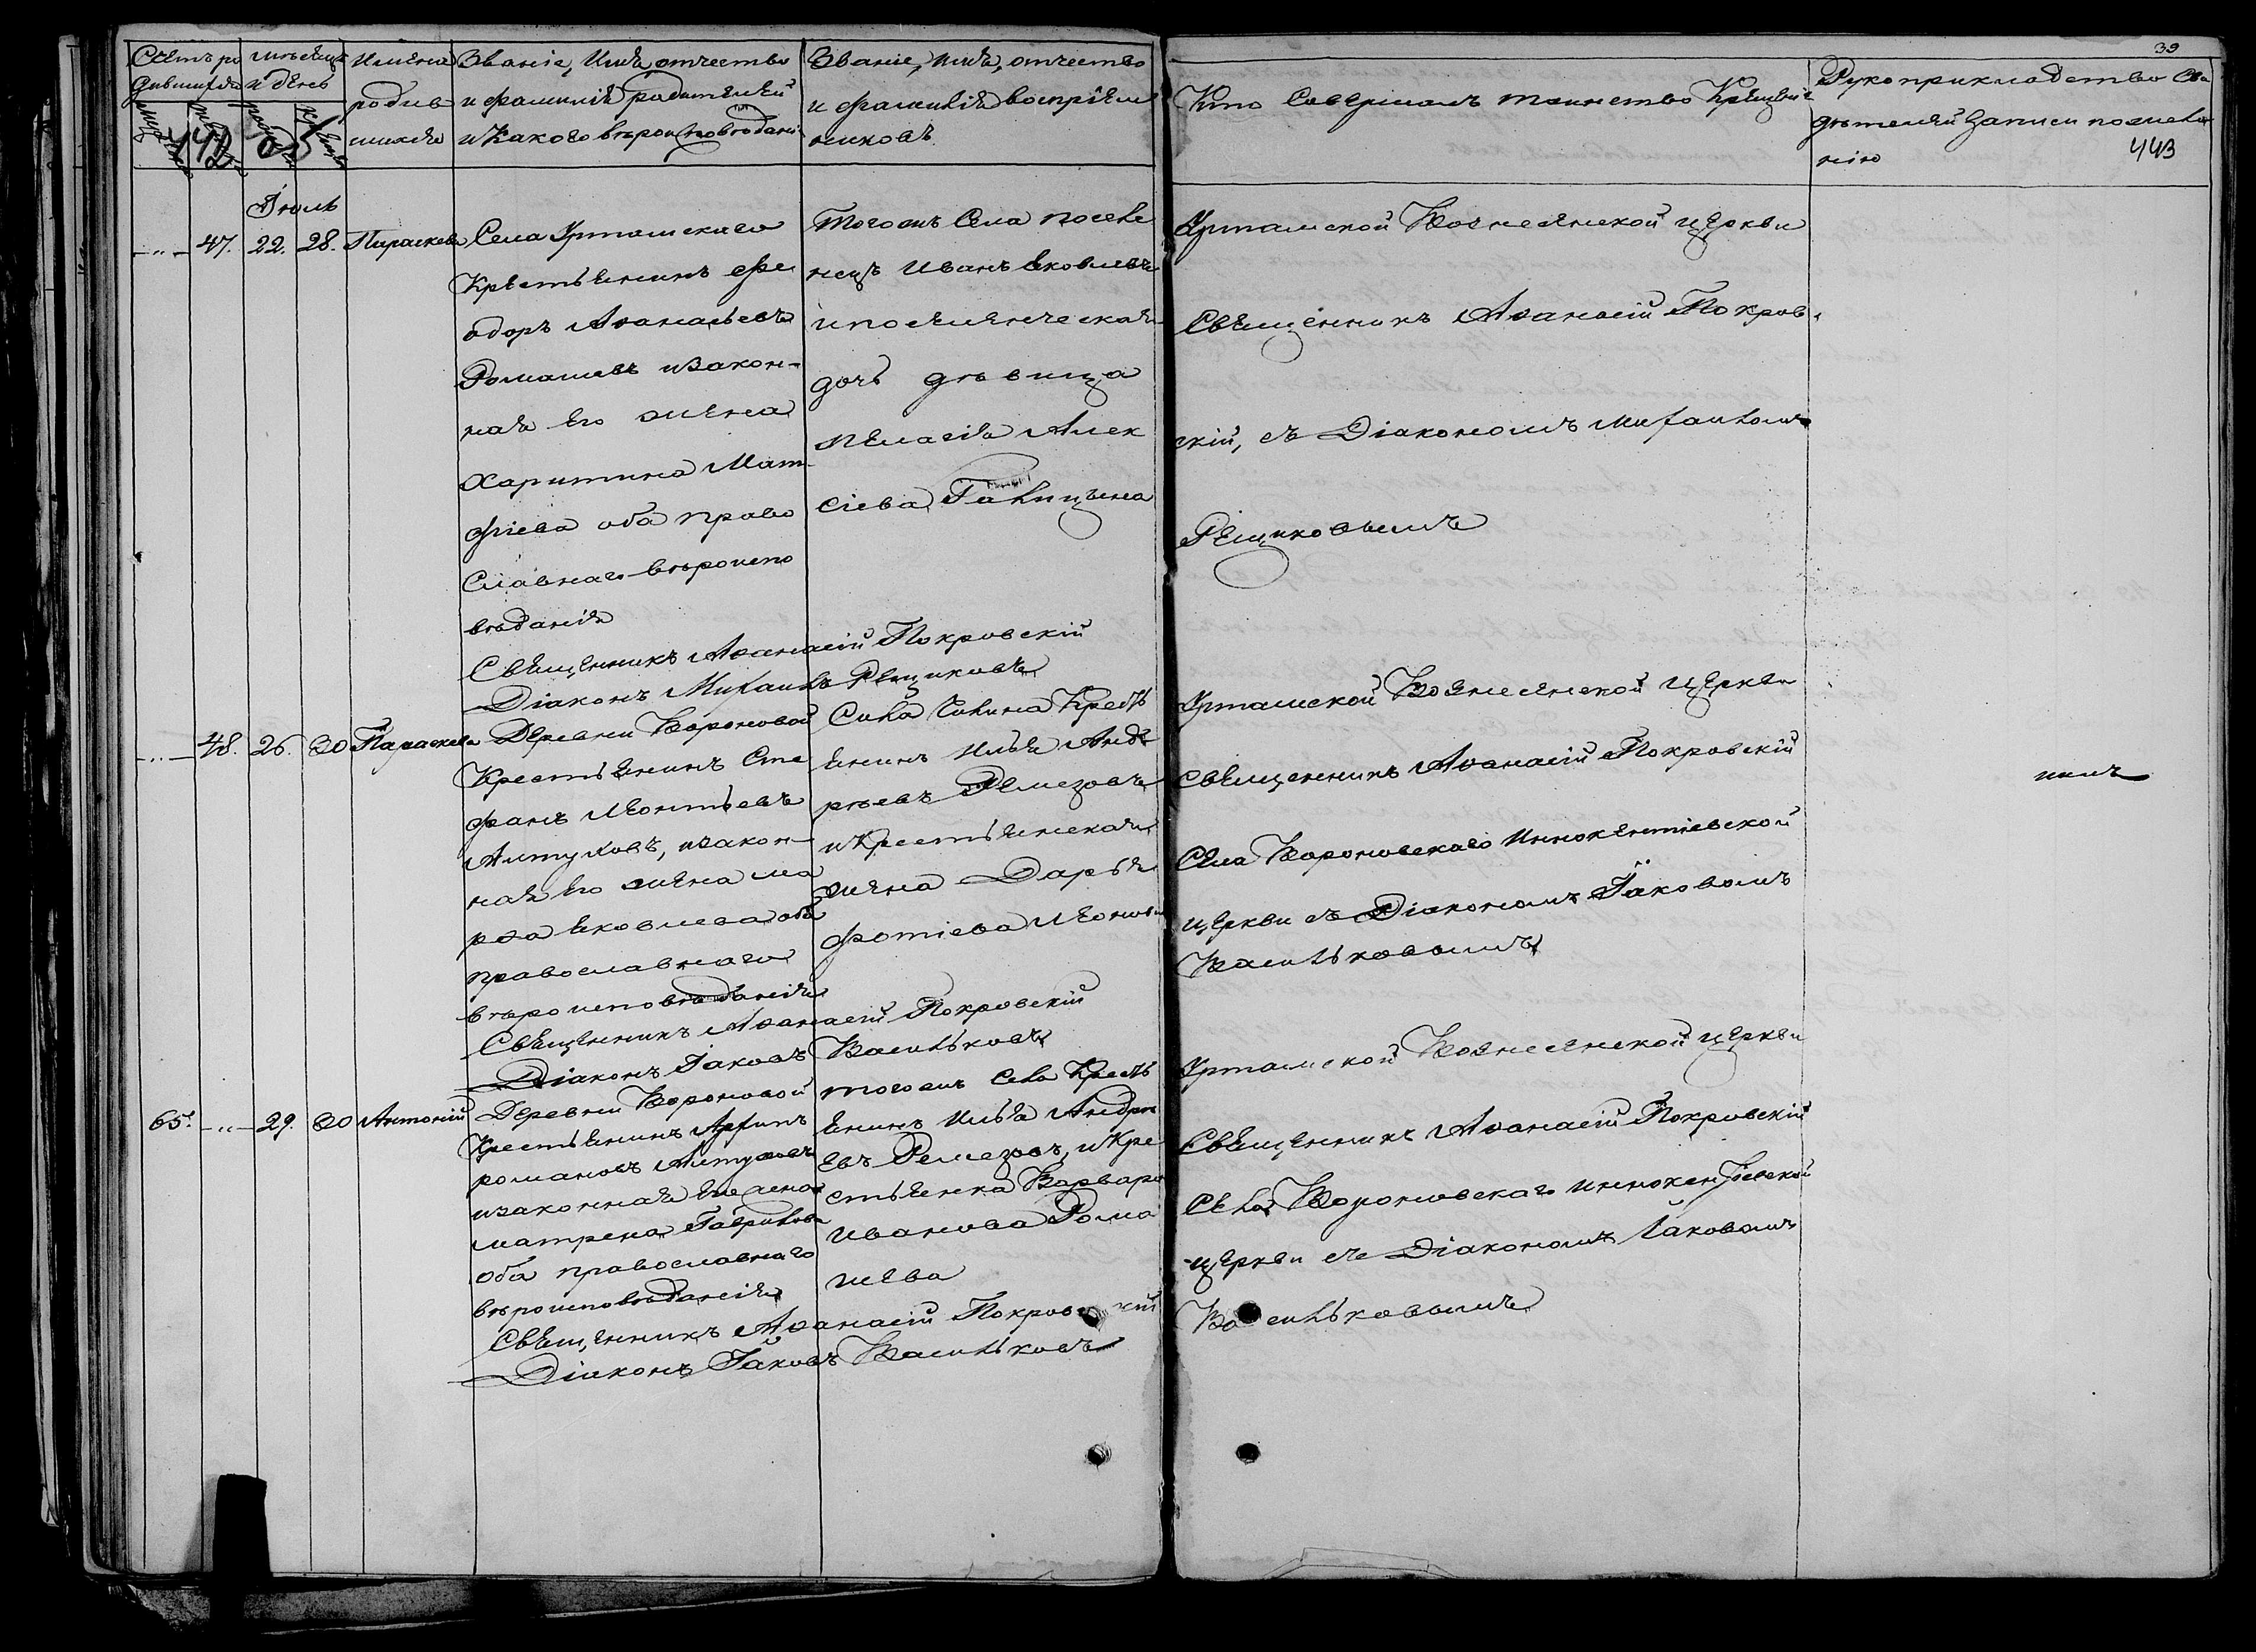 39
Счетъ ро
дившихся
мѣсяцъ
и день
Имена
родив
шихся
Званіе, Имя, отчество
и фамилія родителей
и какого вѣроисповѣдані
Званіе, имя, отчество
и фамилія воспріем
никовъ
Кто Совершалъ таинство Крещенія
Рукоприкладство Сви
дѣтелей Записи по жела
нію
142
443
Іюль
-"- 47. 22. 28. Параскева
Села Уртамскаго
Крестьянинъ Фе
одоръ Аѳанасьевъ
Ромашевъ и закон-
ная его жена
Харитина Мат
фіева оба право
славнаго вѣроиспо
вѣданія
Тогожъ Села поселе
нецъ Иванъ Яковлевъ
и поселенческая
дочь дѣвица
Пелагія Алек
сіева Галицына
Уртамской Вознесенской церкви
Священникъ Аѳанасій Покров-
скій, съ Діакономъ Михаиломъ
Рещиковымъ
Священникъ Аѳанасій Покровскій
Діаконъ Михаилъ Рещиковъ
-"- 48. 26. 30 Параскева
Деревни Вороновой
Крестьянинъ Сте
фанъ Леонтьевъ
Алтуховъ, и закон-
ная его жена Ма
рѳа Яковлева оба
православнаго
вѣроисповѣданія
Крестъ
янинъ Илья Анд
реевъ Ремезовъ
и Крестьянская
жена Дарья
Фотіева Леонов
Уртамской Вознесенской церкви
Священникъ Аѳанасій Покровскій
Села Вороновскаго Иннокентіевской
церкви съ Діакономъ Іаковомъ
Васильковымъ
Священникъ Аѳанасій Покровскій
Діаконъ Іаковъ Васильковъ
65. -"- 29. 30 Антоній
Деревни Вороновой
Крестьянинъ Архипъ
Романовъ Алтуховъ
и законная его жена
Матрена Гаврилова
оба православнаго
вѣроисповѣданія
Тогожъ Села Крестъ
янинъ Илья Андре
евъ Ремезовъ, и Кре
стьянка Варвара
Иванова Рома
шева
Уртамской Вознесенской церкви
Священникъ Аѳанасій Покровскій
Села Вороновскаго Иннокентіевской
церкви съ Діакономъ Іаковомъ
Васильковымъ
Священникъ Аѳанасій Покровскій
Діаконъ Іаковъ Васильковъ